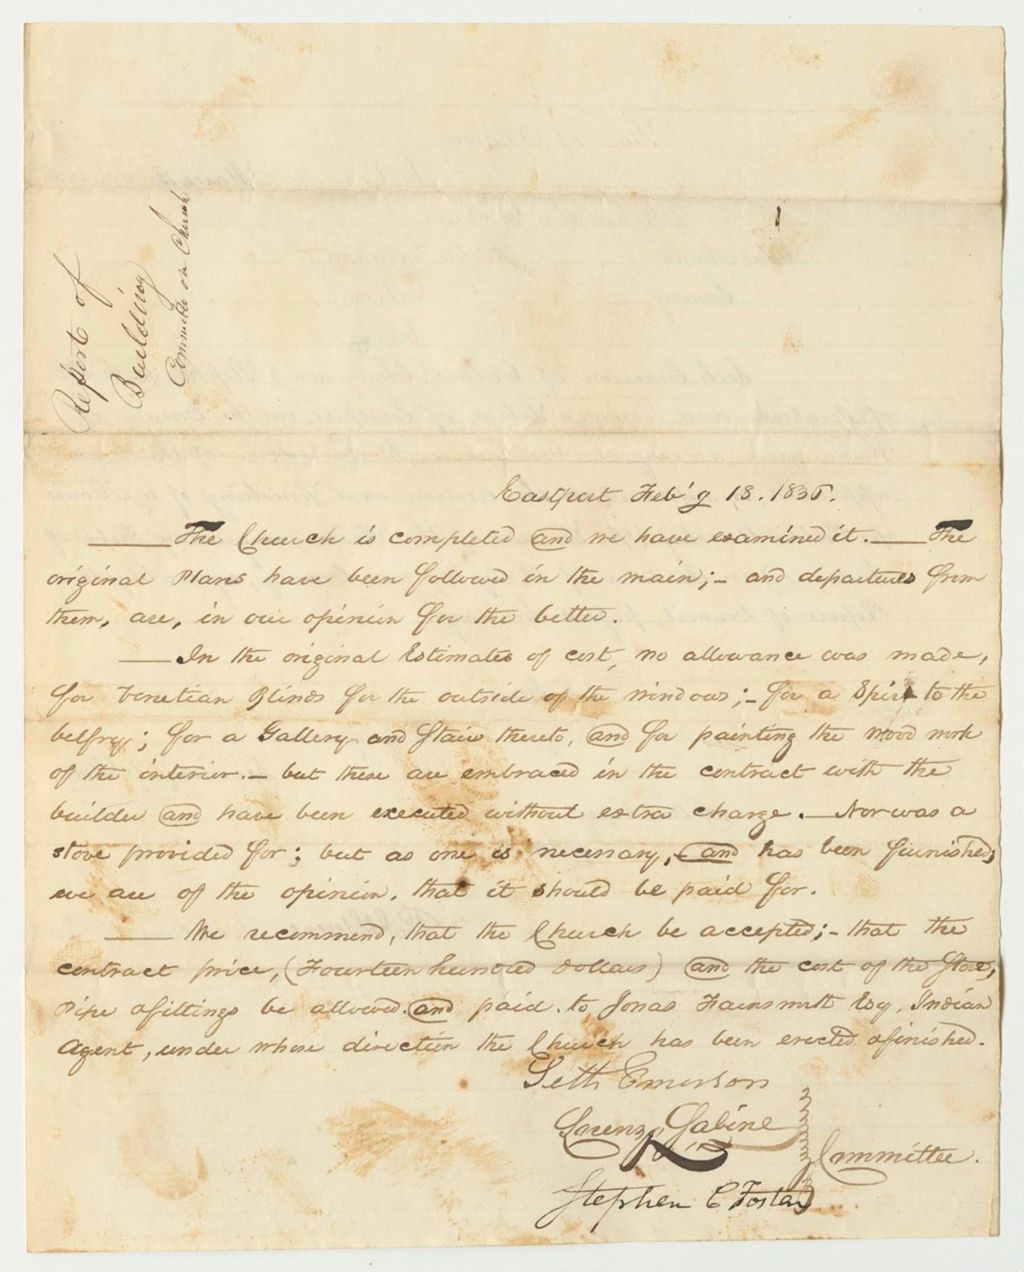 Report of
Building
Committee on Church
Eastport Feb'y 18. 1836.
The Church is completed and we have examined it. The
original Plans have been followed in the main; - and departures from
them, are, in our opinion for the better.
In the original Estimates of cost, no allowance was made,
for Venetian Blinds for the outside of the windows; - for a Spire to the
belfry; for a Gallery and Stairs thereto, and for painting the wood work
of the interior. - but these are embraced in the contract with the
builder and have been executed without extra charge. Nor was a
stove provided for; but as one is necessary, and has been furnished,
we are of the opinion, that it should be paid for.
We recommend, that the Church be accepted; - that the
contract price, (Fourteen hundred Dollars) and the cost of the Stove,
Pipe & fittings be allowed and paid. to Jonas Farnsworth Esq. Indian
Agent, under whose direction the Church has been erected & finished.
Seth Emerson
Lorenzo Sabine
Committee.
Stephen C Foster